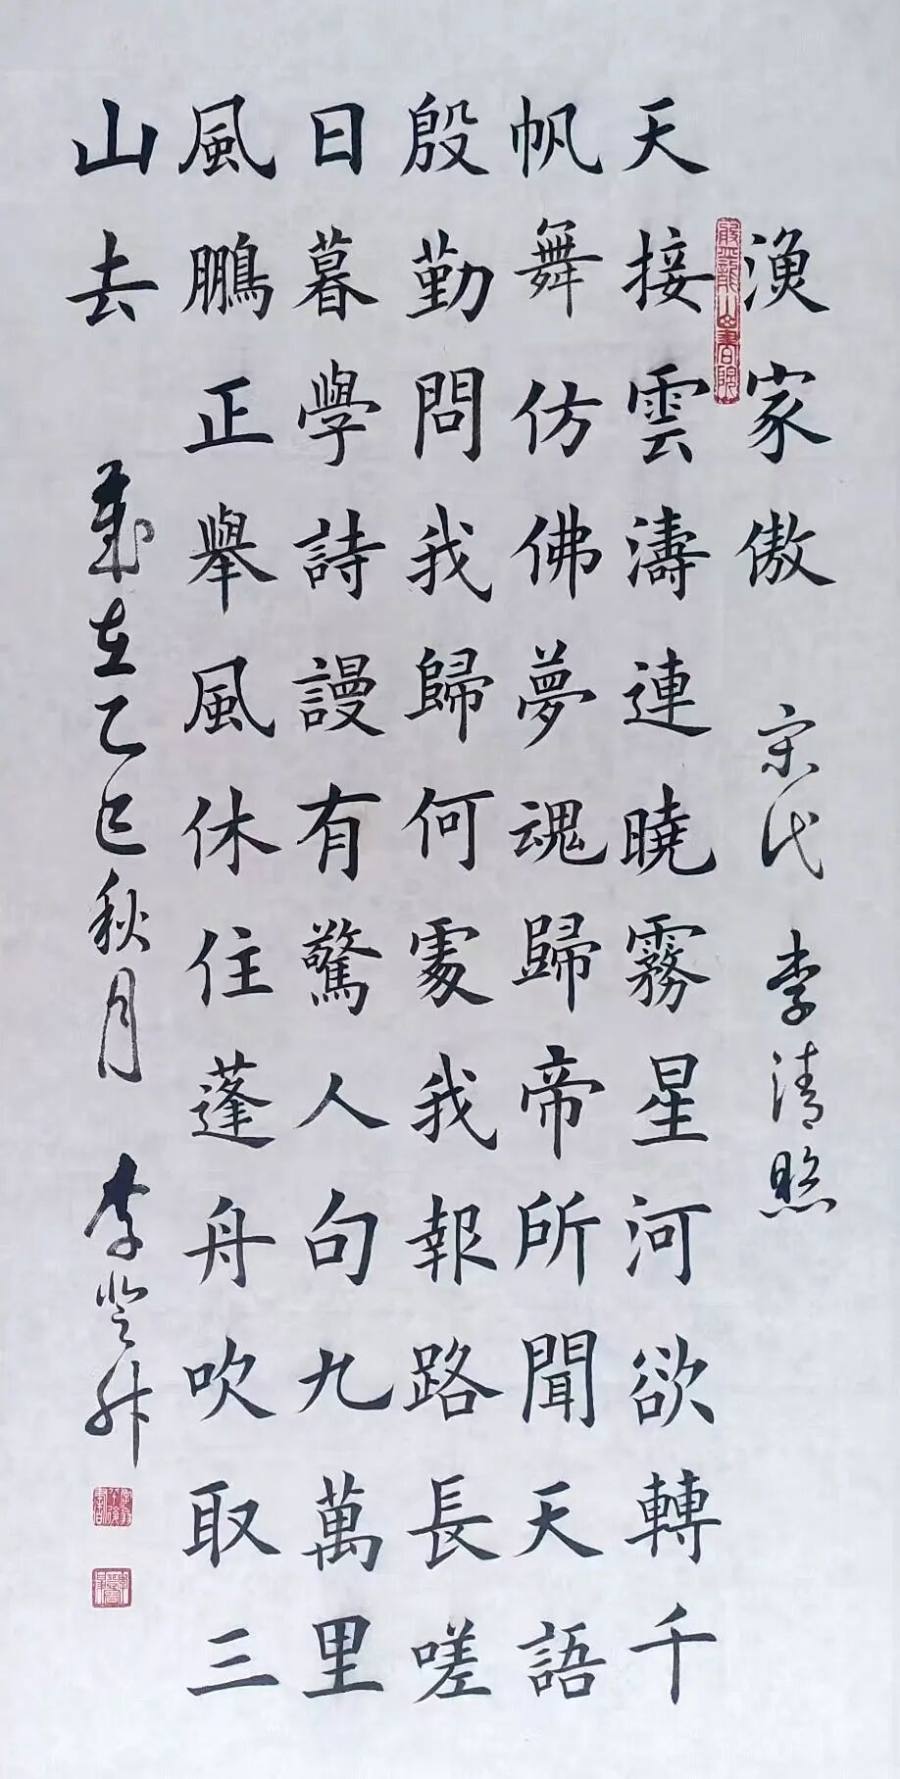 漁家傲 宋代 李清照
天接雲濤連曉霧星河欲轉千
帆舞仿佛夢魂歸帝所聞天語
殷勤問我歸何處我報路長嗟
日暮學詩謾有驚人句九萬里
風鵬正舉風休住蓬舟吹取三
山去 歲在乙巳秋月 李登